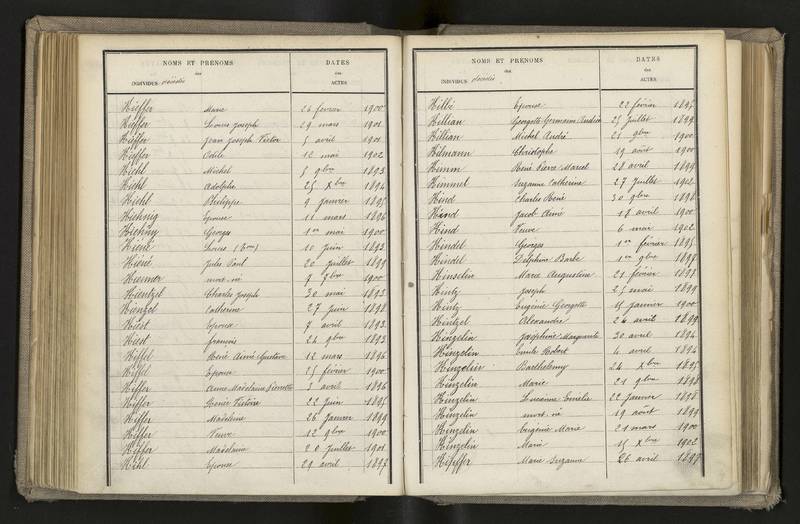 NOMS ET PRÉNOMS DATES
des des
INDIVIDUS décédés ACTES
Hieffer Marie 26 février 1900
Hieffer Louis Joseph 29 mars 1901
Hieffer Jean Joseph Victor 5 avril 1901
Hieffer Odile 12 mai 1902
Hiehl Michel 5 9bre 1893
Hiehl Adolphe 25 Xbre 1894
Hiehl Philippe 9 janvier 1895
Hiehnig Epouse 11 mars 1896
Hiehny Georges 1er mai 1900
Hiéné Louise 10 juin 1893
Hiéné Jules Paul 20 juillet 1899
mort-né 7 9bre 1900
Hientzel Charles Joseph 30 mai 1893
Hienzel Catherine 27 juin 1898
Hiest Epouse 7 avril 1893
Hiest François 24 9bre 1893
Hiffel René Aimé Gustave 12 mars 1896
Hiffel Epouse 15 février 1900
Hiffer Anne Madelaine Pierrette 3 avril 1896
Hiffer Victoire 22 juin 1895
Hiffer Madeleine 26 janvier 1899
Hiffer Veuve 12 9bre 1900
Hiffer Madelaine 20 juillet 1901
Hihl Epouse 29 avril 1897
NOMS ET PRÉNOMS DATES
des des
INDIVIDUS décédés ACTES
Hilbi Epouse 22 février 1895
Hillian Georgette Germaine Andrée 25 juillet 1899
Hillian Michel André 21 9bre 1900
Hilmann Christophe 19 août 1900
Himm René Pierre Marcel 28 avril 1899
Himmel Suzanne Catherine 27 juillet 1902
Hind Charles René 30 9bre 1898
Hind Jacob Aimé 18 avril 1900
Hind Veuve 6 mai 1902
Hindel Georges 1er février 1895
Hindel Delphine Barbe 1er 9bre 1897
Hinselin Marie Augustine 21 février 1893
Hintz Joseph 25 mai 1899
Hintz Eugénie Georgette 15 janvier 1900
Hintzel Alexandre 24 avril 1899
Hinzelin Joséphine Marguerite 30 avril 1894
Hinzelin Emile Robert 4 avril 1894
Hinzelin Barthelemy 24 Xbre 1895
Hinzelin Marie 21 9bre 1898
Hinzelin Lucienne Emelie 22 janvier 1898
Hinzelin mort-né 19 août 1899
Hinzelin Eugénie Marie 21 mars 1900
Hinzelin Marie 15 Xbre 1902
Hipffer Marie Suzanne 26 avril 1897